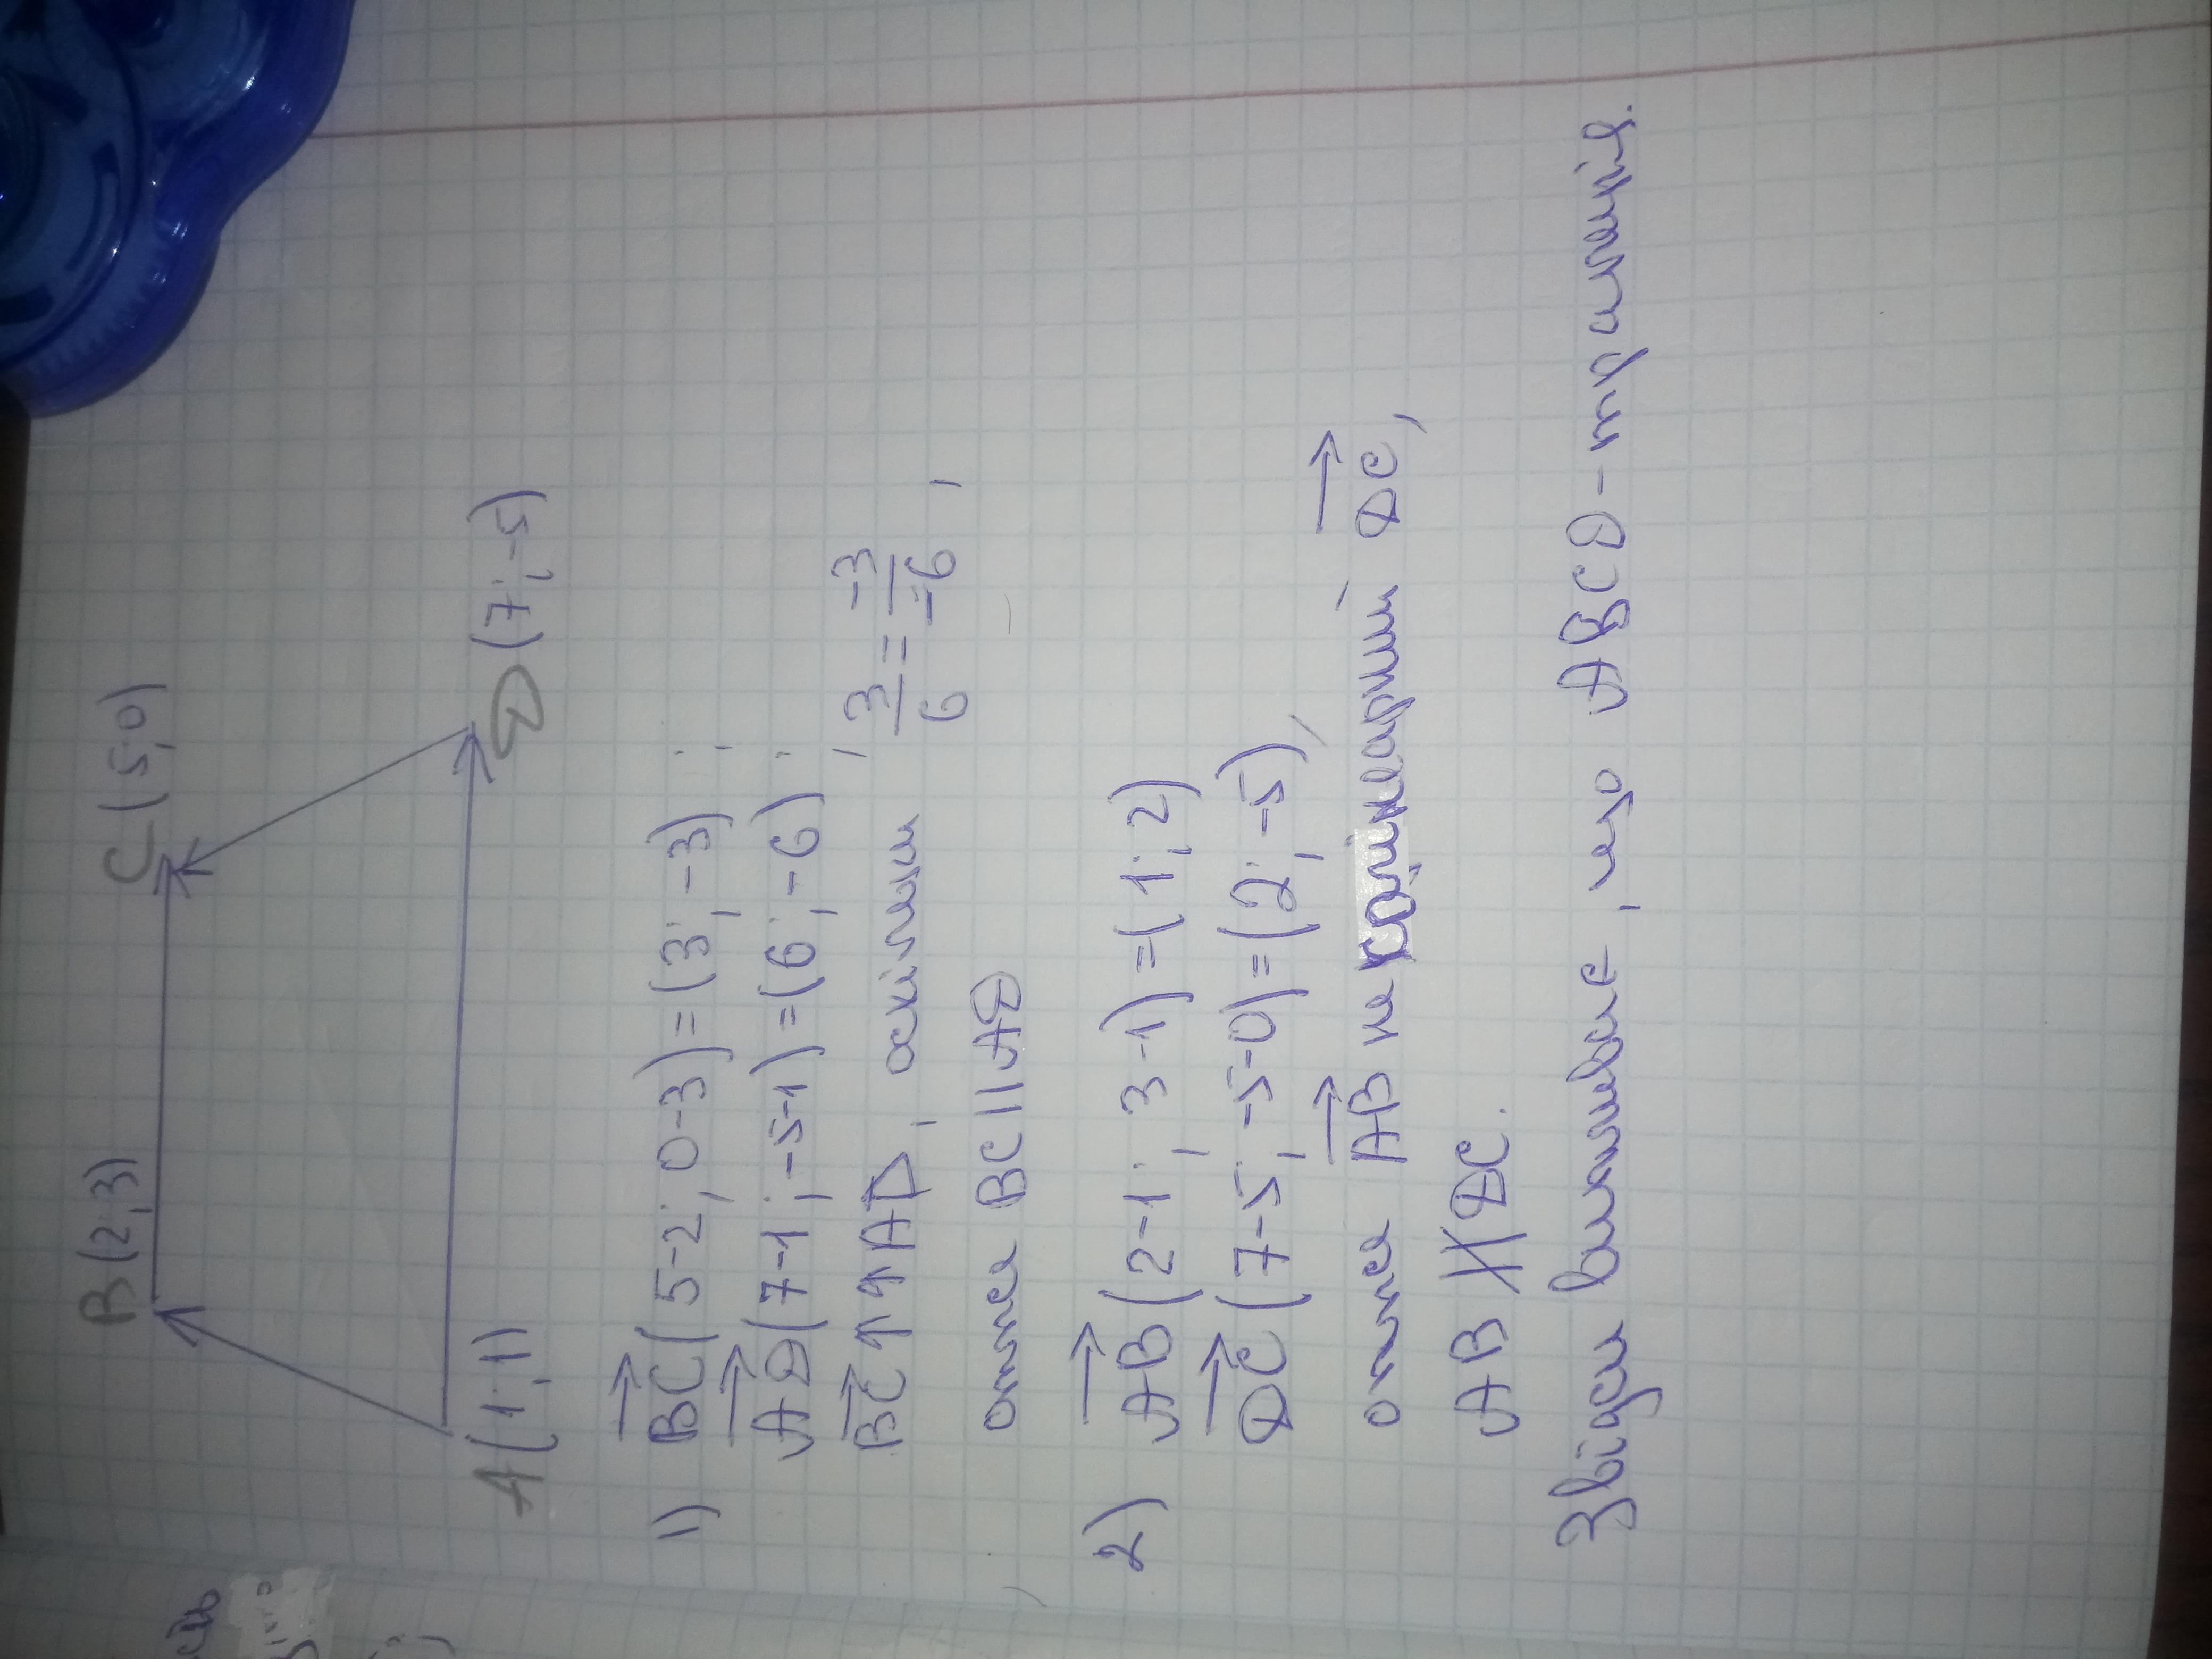 B(2;3) C(5;0)
A(1;1) D(7;-5)
1) BC(5-2; 0-3)=(3;-3);
AD(7-1;-5-1)=(6;-6);
BC↑↑AD, оскільки, 3/6=-3/-6,
отже BC||AD
2) AB(2-1; 3-1)=(1;2)
DC(7-5;-5-0)=(2;-5),
отже AB не колінеарний DC,
AB∦DC.
Звідси випливає, що ABCD-трапеція.